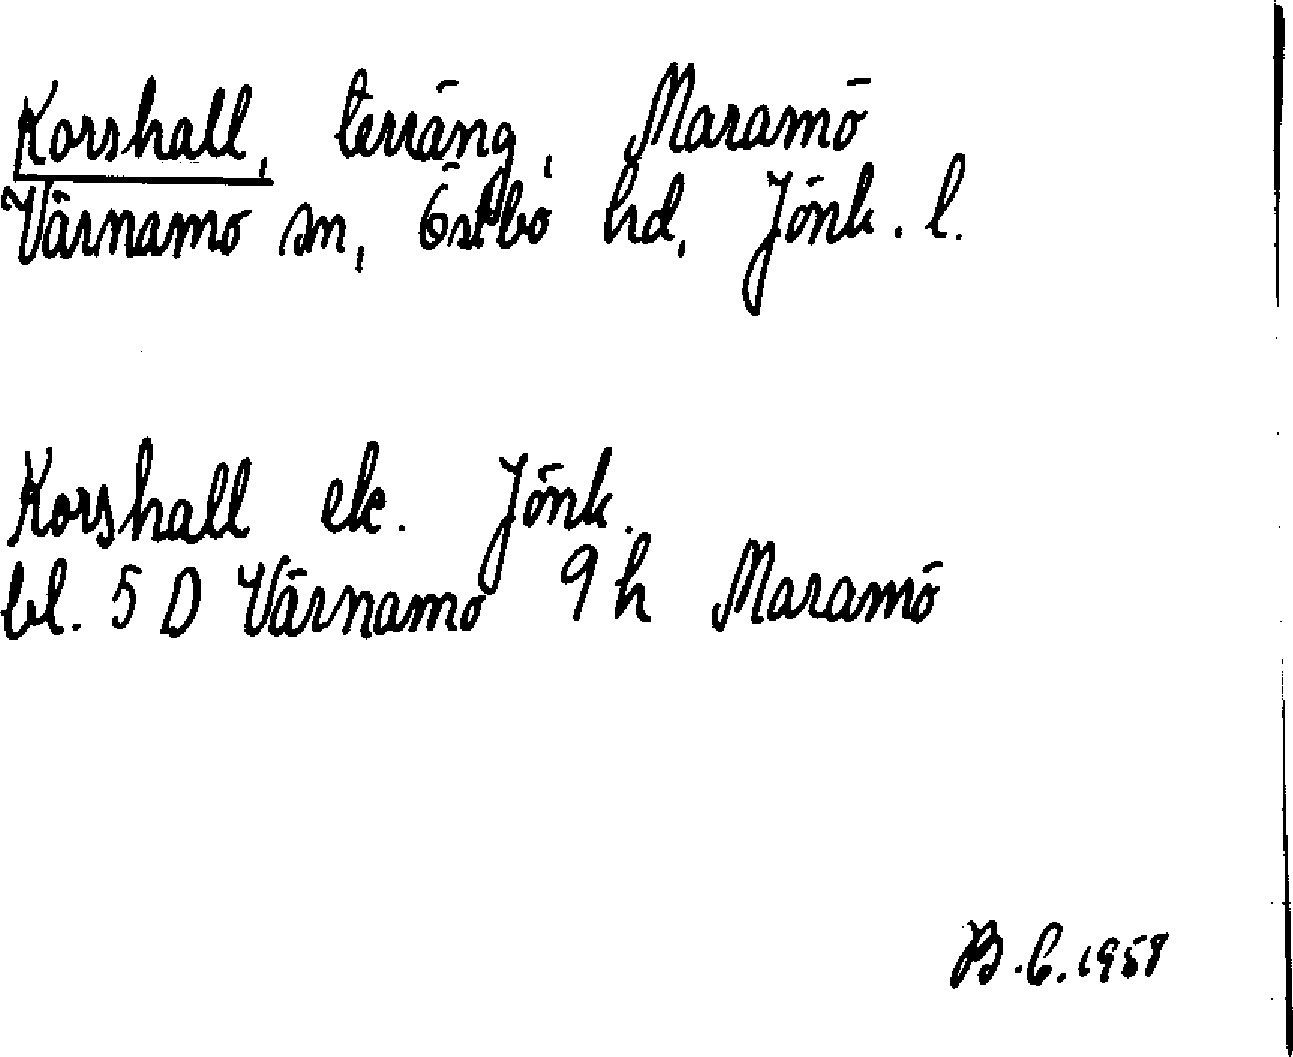 Korshall, terräng, Maramö
Värnamo sn, Östbo hd, Jönk. l.
Korshall ek. Jönk.
bl. 5 D Värnamo 9 h Maramö
B. C. 1958